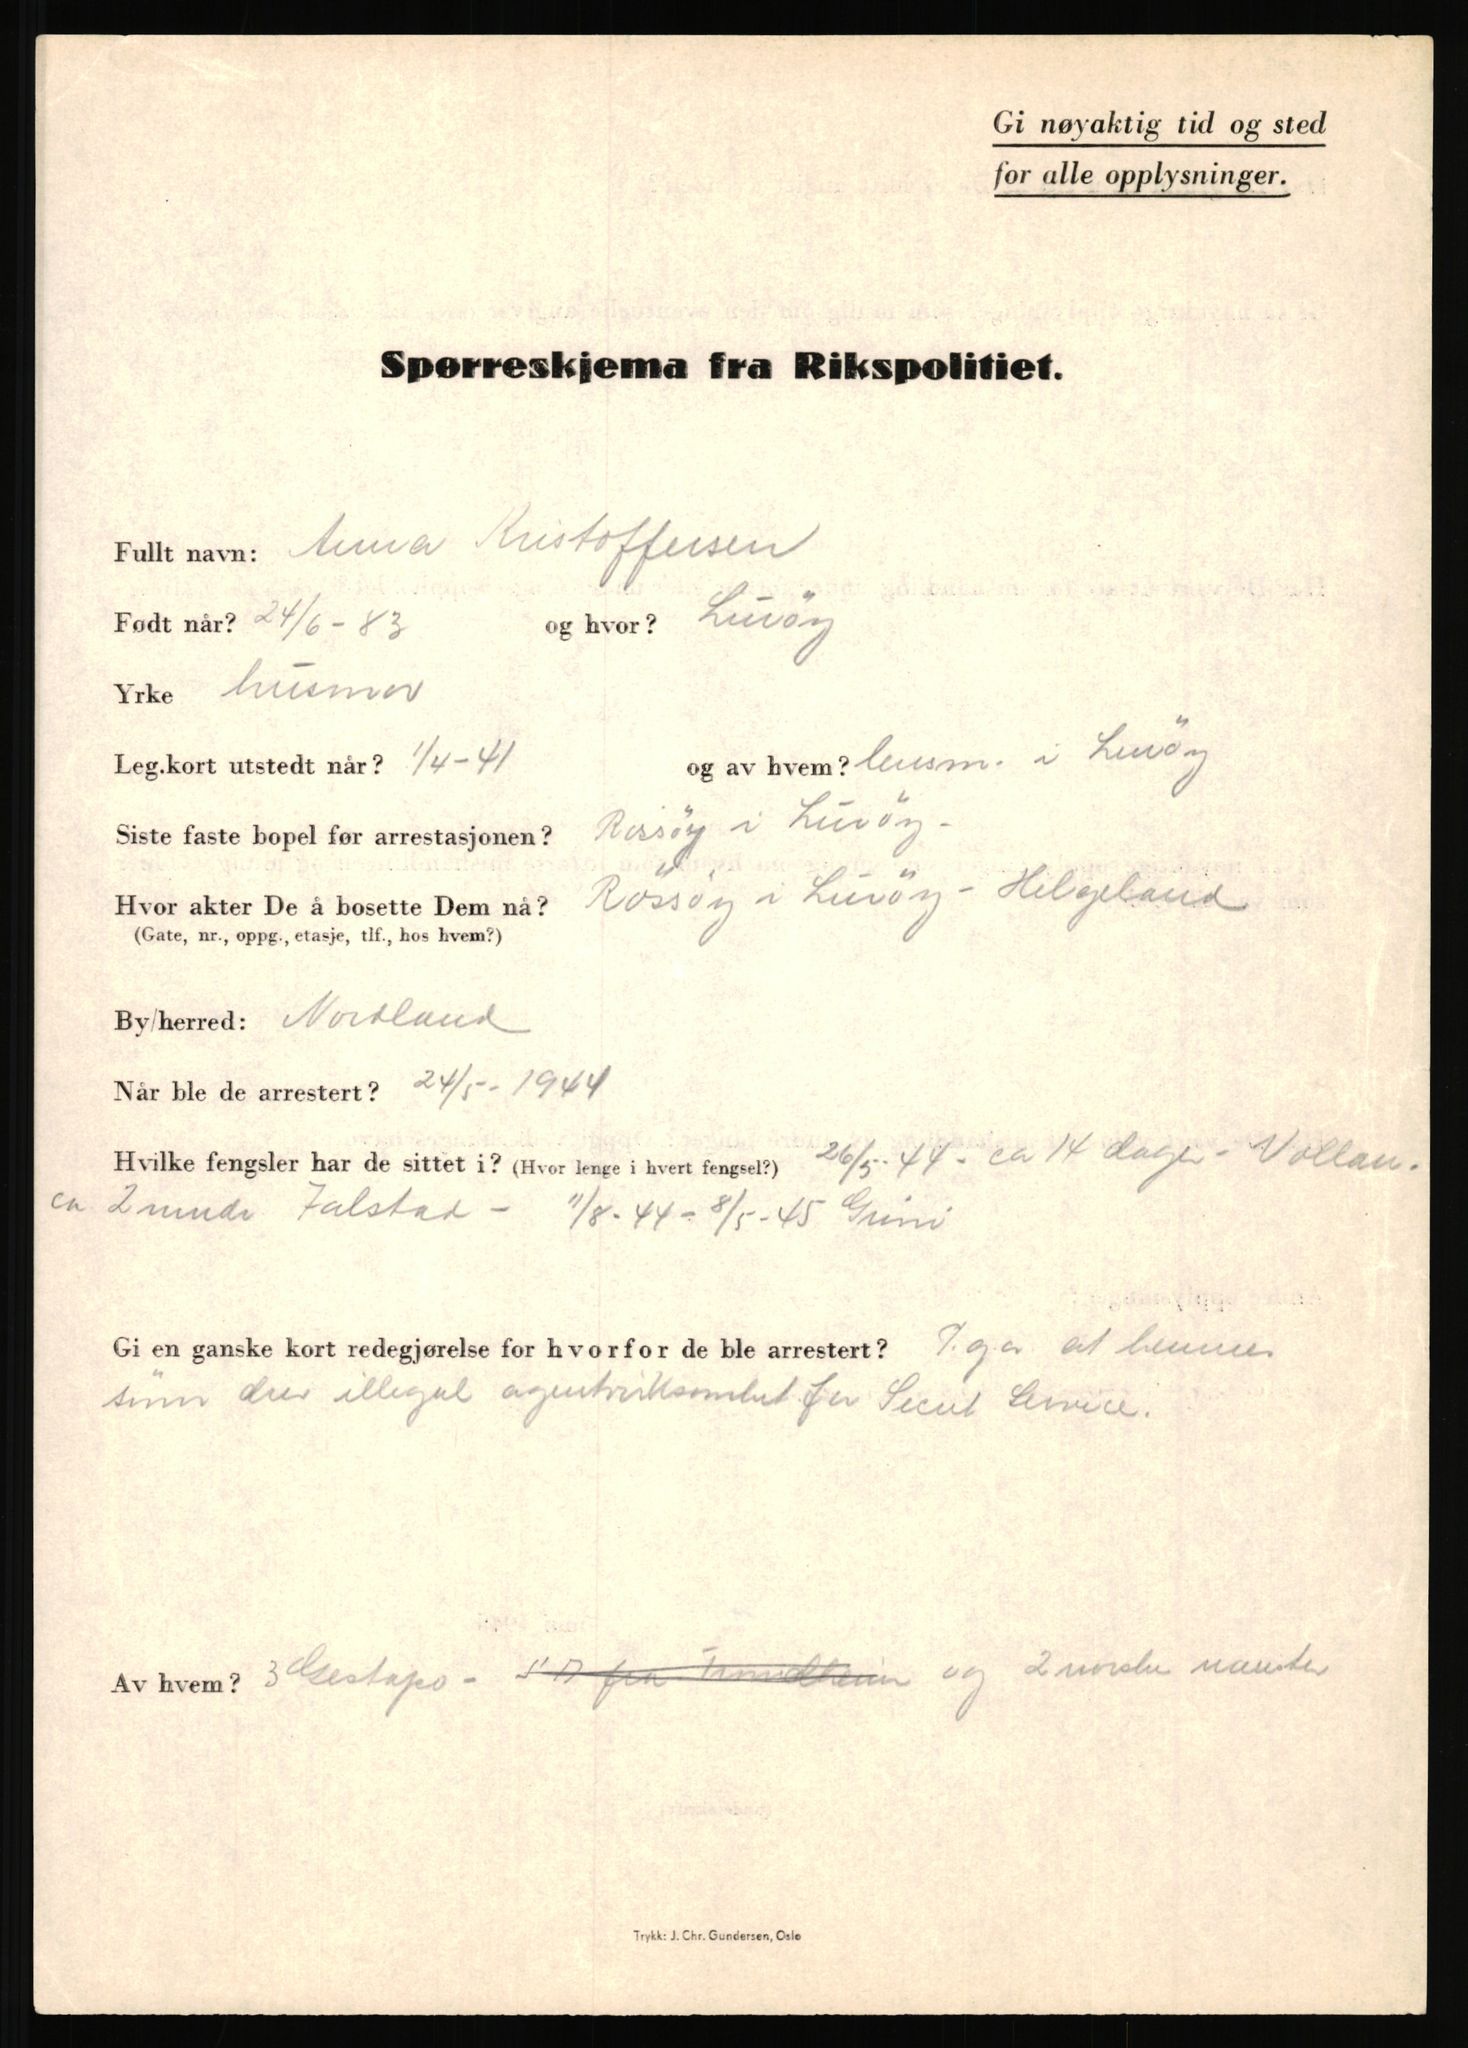 Gi nøyaktig tid og sted
for alle opplysninger.
Spørreskjema fra Rikspolitiet.
Fullt navn: Anna Kristoffersen
Født når? 24/6-83 og hvor? Luröy
Yrke husmor
Leg.kort utstedt når? 1/4-41 og av hvem? lensm. i Luröy
Siste faste bopel før arrestasjonen? Rossöy i Luröy-
Hvor akter De å bosette Dem nå? Rössöy i Luröy - Helgeland
(Gate, nr., oppg., etasje, tlf., hos hvem?)
By/herred: Nordland
Når ble de arrestert? 24/5-1944
Hvilke fengsler har de sittet i? (Hvor lenge i hvert fengsel?) 26/5-44 - ca 14 dager - Vollan.
ca 2 mndr Falstad - 11/8-44 - 8/5-45 Grini
Gi en ganske kort redegjørelse for hvorfor de ble arrestert? P.g.a at hennes
sönn drev illegal agentvirksomhet for Secret Service.
Av hvem? 3 Gestapo - S D fra Trondheim og 2 norske
Trykk: J. Chr. Gundersen, Oslo